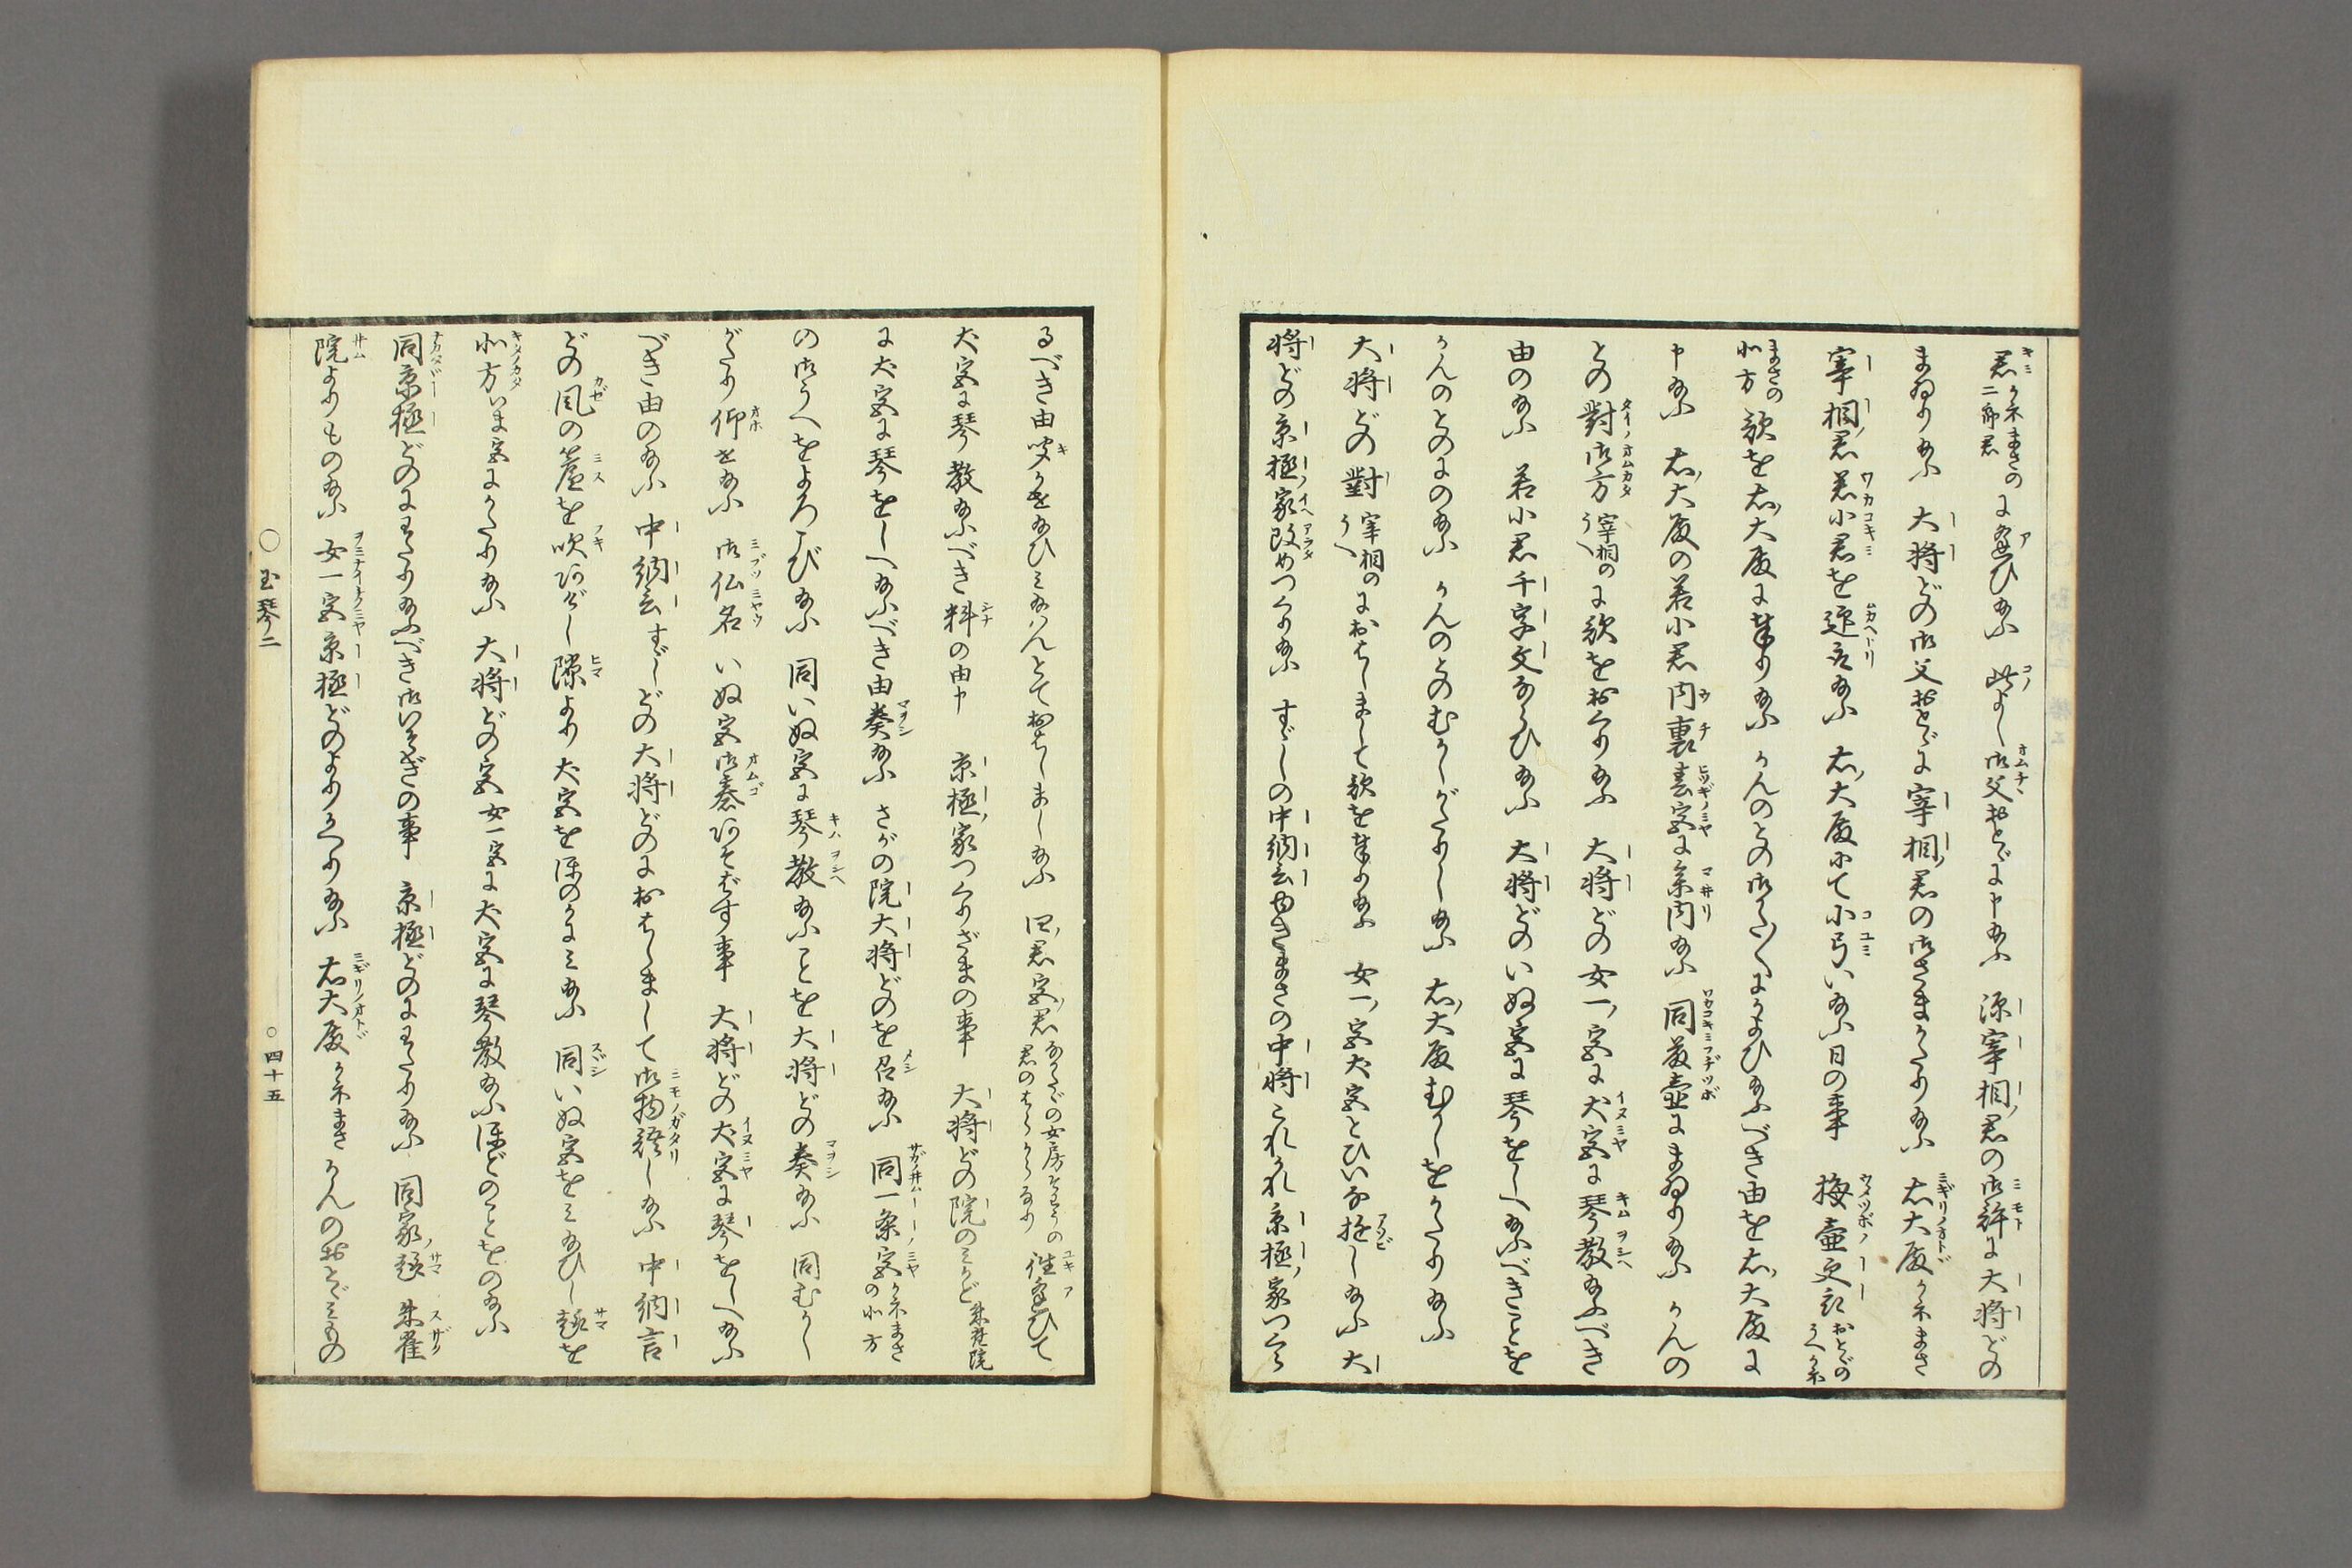 君かねまさの二郎君に逢ひ給ふ 此よし御父おとゞに申給ふ 源宰相君の御許に大将どの
まゐり給ふ 大将どの御父おとゞに宰相君の御さまかたり給ふ 右大殿かねまさ
宰相君若小君を迎取給ふ 右大殿にて小弓い給ふ日の事 梅壺更衣おとゞのうへかね
まさの北方歌を右大殿に奉り給ふ かんのとの御かた〴〵にかよひ給ふべき由を右大殿に
申給ふ 右大殿の若小君内裏春宮に参内給ふ 同藤壺にまゐり給ふ かんの
との對御方宰相のうへに歌をおくり給ふ 大将どの女一宮に犬宮に琴教給ふべき
由の給ふ 若小君千字文ならひ給ふ 大将どのいぬ宮に琴をしへ給ふべきことを
かんのとのにの給ふ かんのとのむかしがたりし給ふ 右大殿むかしをかたり給ふ
大将どの對宰相のうへにおはしまして歌を奉り給ふ 女一宮犬宮とひいな遊し給ふ 大
将どの京極家改めつくり給ふ すゞしの中納言ゆきまさの中将これかれ京極家つくら
るべき由聞かせ給ひみ給はんとておはしまし給ふ 四君宮君 往逢ひて
犬宮に琴教給ふべき料の由申 京極家つくりざまの事 大将どの院のみかど朱雀院
に犬宮に琴をしへ給ふべき由奏給ふ さがの院大将どのを召給ふ 同一条宮かねまさの北方
の御うへをよろこび給ふ 同いぬ宮に琴教給ふことを大将どの奏給ふ 同むかし
がたり仰せ給ふ 御仏名 いぬ宮御碁あそばす事 大将どの犬宮に琴をしへ給ふ
べき由の給ふ 中納言すゞしどの大将どのにおはしまして御物語し給ふ 中納言
どの風の簾を吹あげし隙より犬宮をほのかにみ給ふ 同いぬ宮をみ給ひし様を
北方いま宮にかたり給ふ 大将どの宮女一宮に犬宮に琴教給ふほどのことをの給ふ
同京極どのにわたり給ふべき御いそぎの事 京極どのにわたり給ふ 同家様 朱雀
院よりもの給ふ 女一宮京極どのよりかへり給ふ 右大殿かねまさ かんのおとゞ
○玉琴二
○四十五